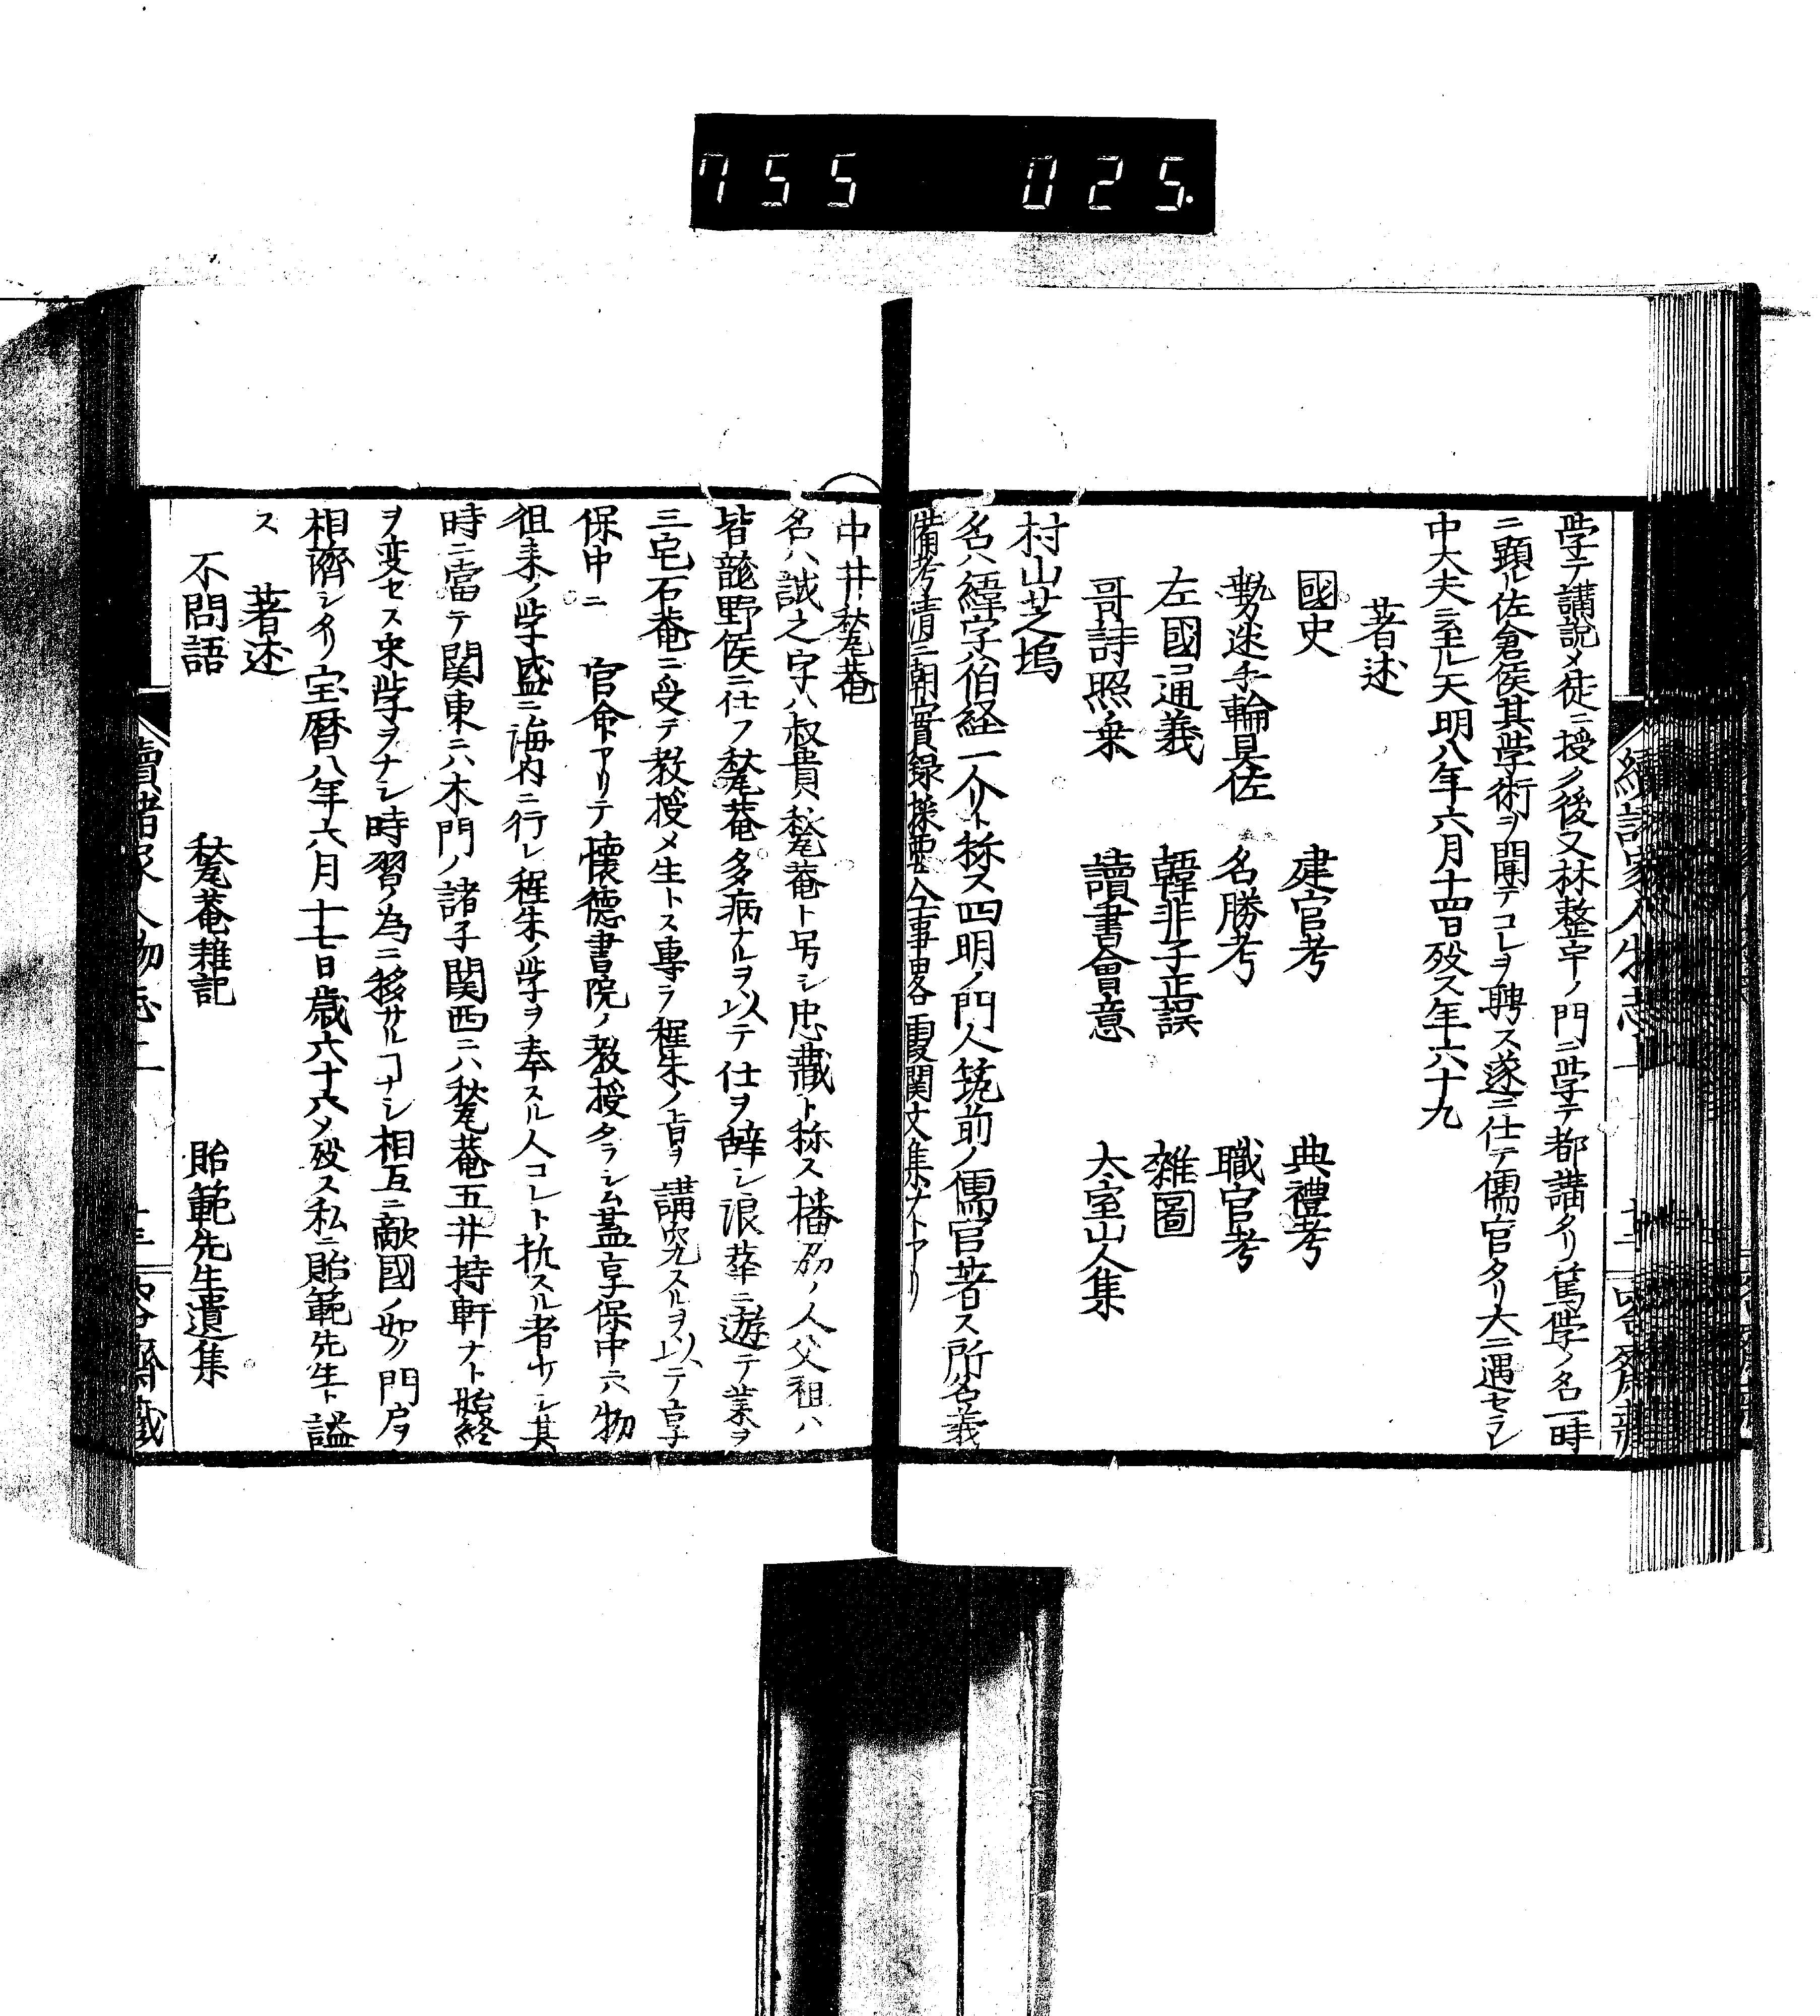 755 025.
學テ講説メ徒ニ授ク後又林整宇ノ門ニ學テ都講タリ篤學ノ名一時
ニ顕ル佐倉侯其學術ヲ聞テコレヲ聘ス遂ニ仕テ儒官タリ大ニ遇セラレ
中大夫ニ至ル天明八年六月十四日殁ス年六十九
著述
國史 建官考 典禮考
名勝考 職官考
左國通義 韓非子正誤 雑圖
哥詩照乗 讀書會意 太室山人集
村山芝塢
名ハ緯字伯経一介ト称ス四明ノ門人筑前ノ儒官著ス所名義
備考清二朝實録採要全事畧霞関文集ナトアリ
中井甃菴
名ハ誠之字ハ叔貴甃菴ト号シ忠藏ト称ス播劦ノ人父祖ハ
皆龍野侯ニ仕フ甃菴多病ナルヲ以テ仕ヲ辞シ浪華ニ遊テ業ヲ
三宅石菴ニ受テ教授メ生トス專ラ程朱ノ旨ヲ講究スルヲ以テ享
保中ニ 官命アリテ懐德書院ノ教授タラシム蓋享保中ハ物
徂徠ノ學盛ニ海内ニ行レ程朱ノ学ヲ奉スル人コレト抗スル者少シ其
時ニ當テ関東ニハ木門ノ諸子関西ニハ甃菴五井持軒ナト始終
ヲ変セス宋學ヲナシ時習ノ為ニ移サルヿナシ相互ニ敵國ノ如ク門戸ヲ
相濟シタリ宝暦八年六月十七日歳六十六メ殁ス私ニ貽範先生ト謚
ス
著述
不問語 甃菴雜記 貽範先生遺集